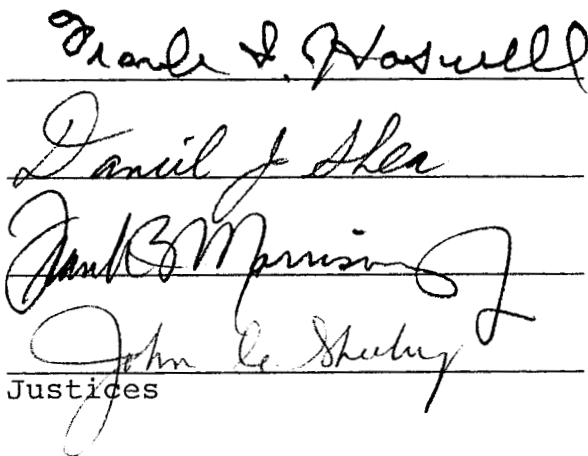 Frank I. Haswell
Daniel J. Shea
Frank B Morrison Jr
John C. Sheehy
Justices